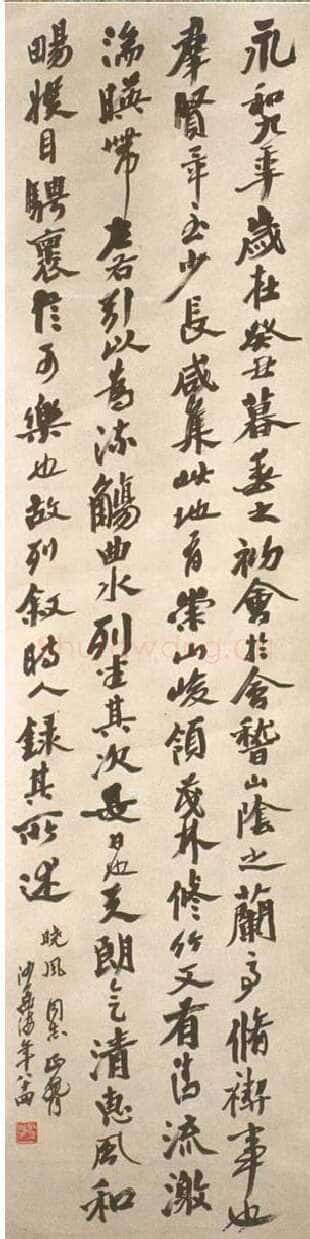 永和九年歲在癸丑暮春之初會於會稽山陰之蘭亭脩禊事也
羣賢畢至少長咸集此地有崇山峻領茂林修竹又有清流激
湍暎帶左右引以為流觴曲水列坐其次是日也天朗氣清惠風和
暢娛目騁懷信可樂也故列敘時人錄其所述
曉風同志正
沙孟海年八十四